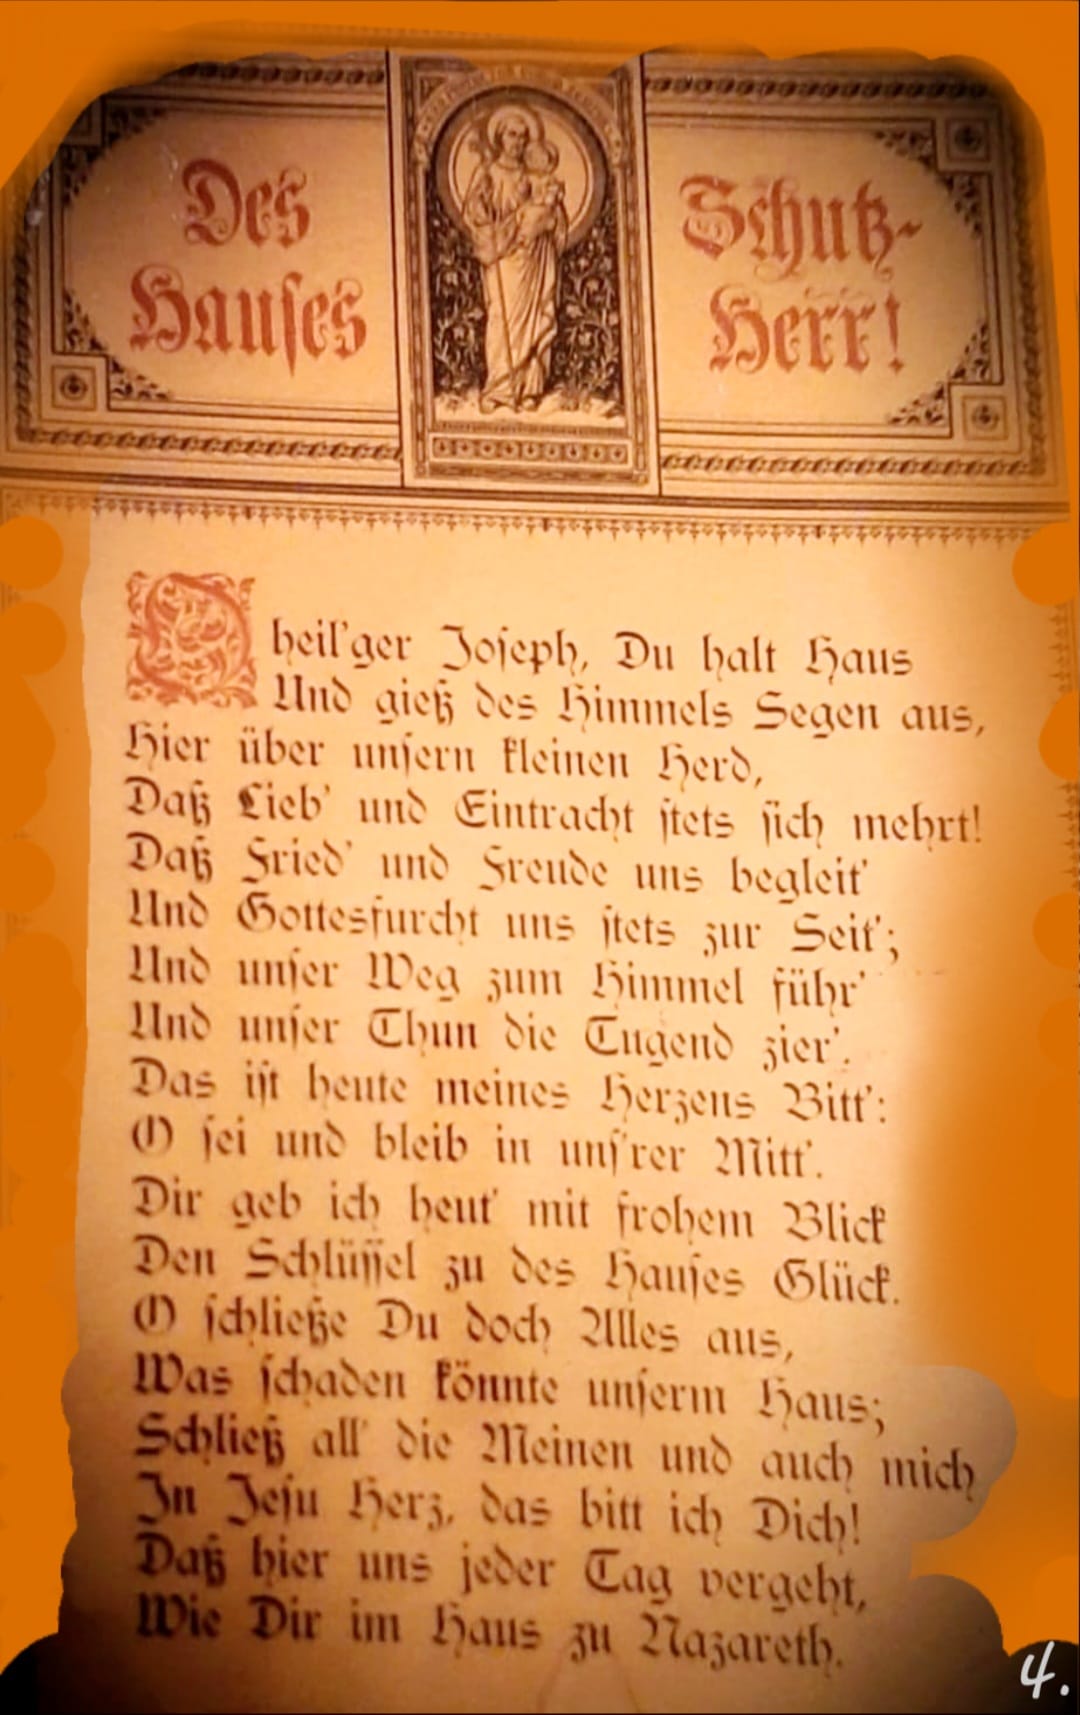 Des
Hauses
Schutz-
Herr!
O heil'ger Joseph, Du halt Haus
Und gieß des Himmels Segen aus,
Hier über unsern kleinen Herd,
Daß Lieb' und Eintracht stets sich mehrt!
Daß Fried' und Freude uns begleit'
Und Gottesfurcht uns stets zur Seit';
Und unser Weg zum Himmel führ'
Und unser Thun die Tugend zier'.
Das ist heute meines Herzens Bitt':
O sei und bleib in uns'rer Mitt'.
Dir geb ich heut' mit frohem Blick
Den Schlüssel zu des Hauses Glück.
O schließe Du doch Alles aus,
Was schaden könnte unserm Haus;
Schließ all' die Meinen und auch mich
In Jesu Herz, das bitt ich Dich!
Daß hier uns jeder Tag vergeht,
Wie Dir im Haus zu Nazareth.
4.